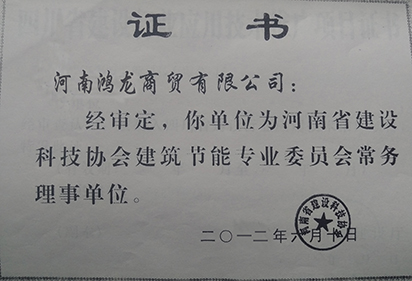 证书
河南鸿龙商贸有限公司：
经审定，你单位为河南省建设
科技协会建筑节能专业委员会常务
理事单位。
河南省建设科技协会
二〇一二年六月十日